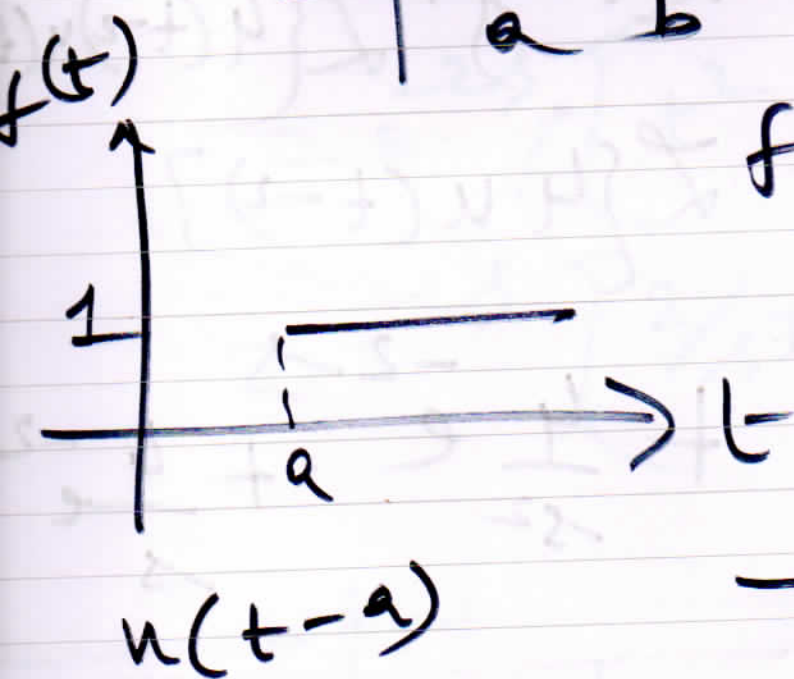 a b
f(t)
f
1
a
t
u(t-a)